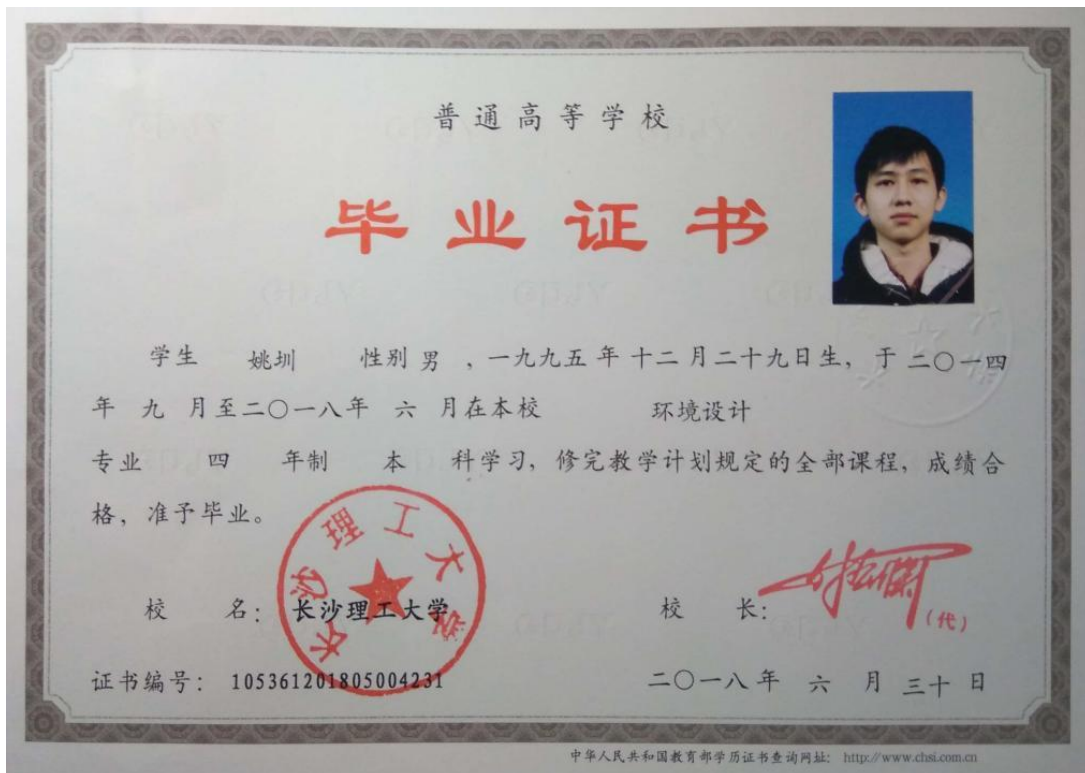 普通高等学校
毕业证书
学生 姚圳 性别 男 ，一九九五年十二月二十九日生，于二〇一四
年 九 月至二〇一八年 六 月在本校 环境设计
专业 四 年制 本 科学习，修完教学计划规定的全部课程，成绩合
格，准予毕业。
长沙理工大学
校 名：长沙理工大学 校 长：
(代)
证书编号：105361201805004231 二〇一八年 六 月 三十 日
中华人民共和国教育部学历证书查询网址：http://www.chsi.com.cn